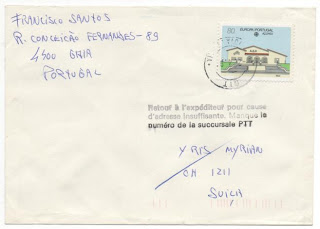 FRANCISCO SANTOS
R. CONCEIÇÃO FERNANDES - 89
4400 GAIA
PORTUGAL
80
EUROPA PORTUGAL
AÇORES
Retour à l'expéditeur pour cause
d'adresse insuffisante. Manque le
numéro de la succursale PTT
YRIS MYRIAN
CH 1211
SUIÇA